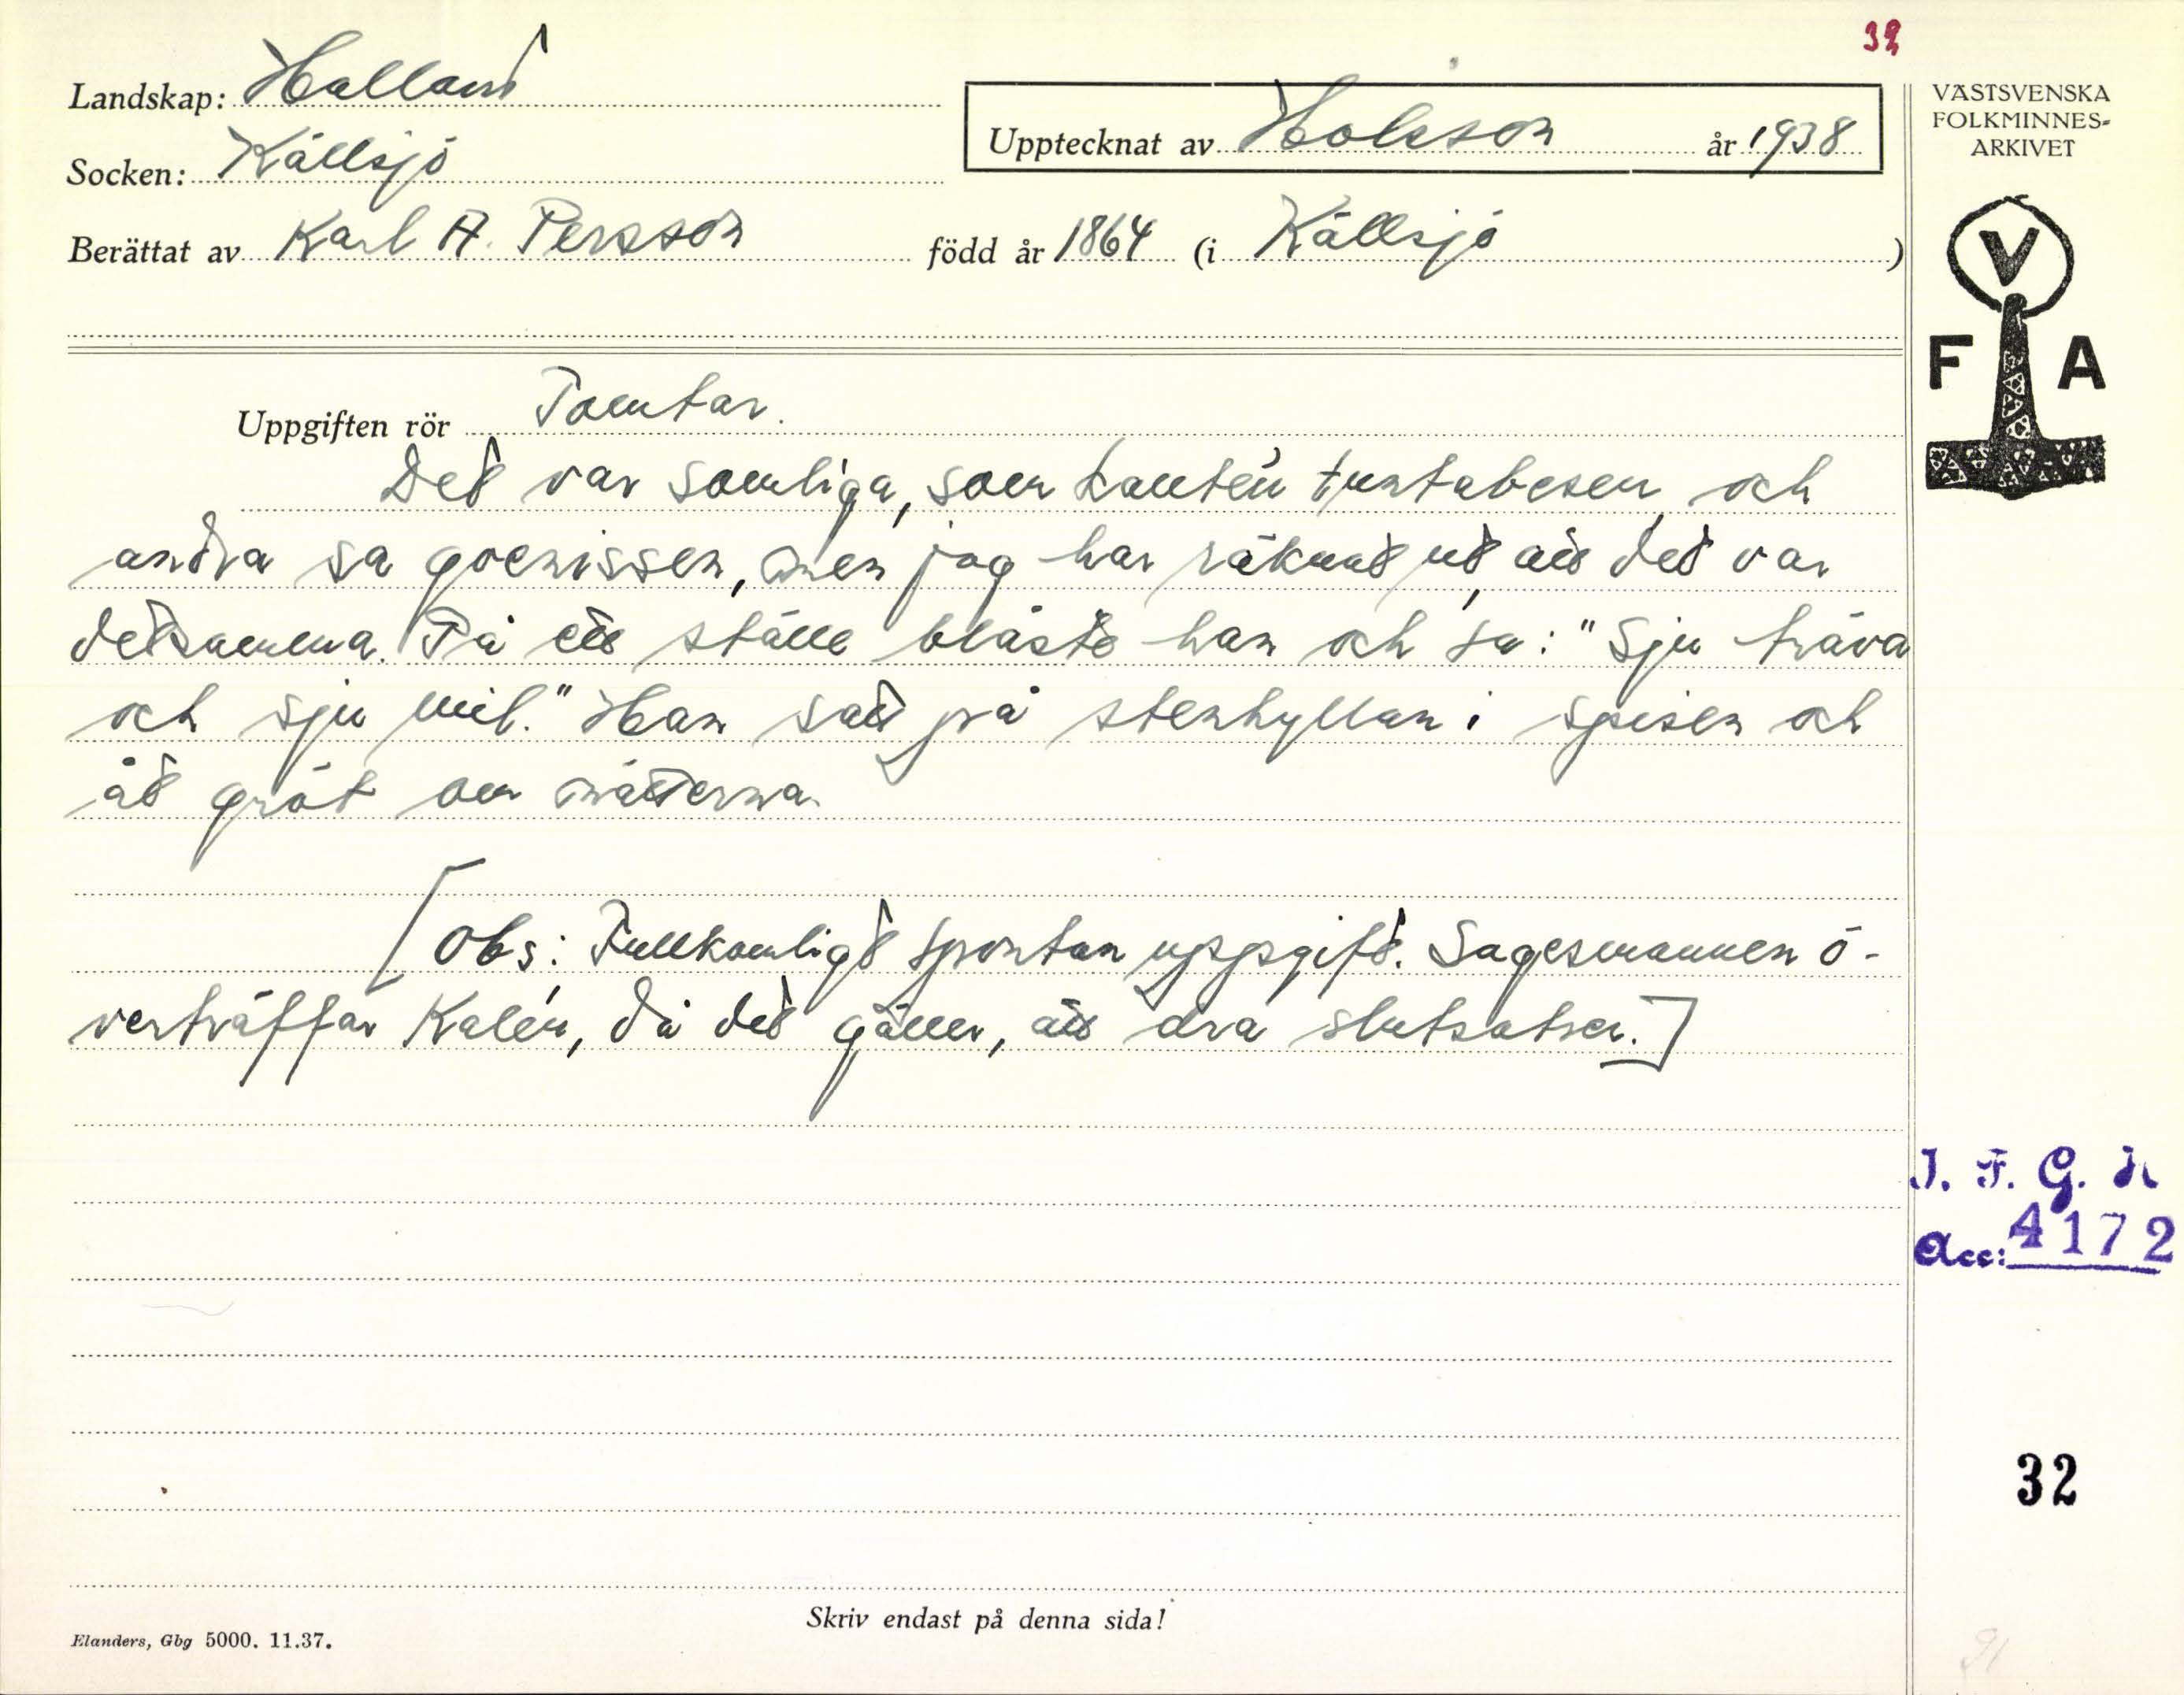 32
Landskap: Halland
Upptecknat av Holsson år 1938
VÄSTSVENSKA
FOLKMINNES-
ARKIVET
Socken: Källsjö
Berättat av Karl A. Persson född år 1864 (i Källsjö)
V
F A
Uppgiften rör Tomtar.
Det var somliga, som kallte'n tuntabesen, och
andra sa goenissen, men jag har räknat ut, att det var
detsamma. På ett ställe blåste han och sa: "Sju träva
och sju mil." Han satt på stenhyllan i spisen och
åt gröt om nätterna.
[Obs: Fullkomligt spontan uppgift. Sagesmannen ö-
verträffar Kalén, då det gäller, att dra slutsatser.]
I. F. G. H
Acc: 4172
32
Skriv endast på denna sida!
Elanders, Gbg 5000. 11.37.
91